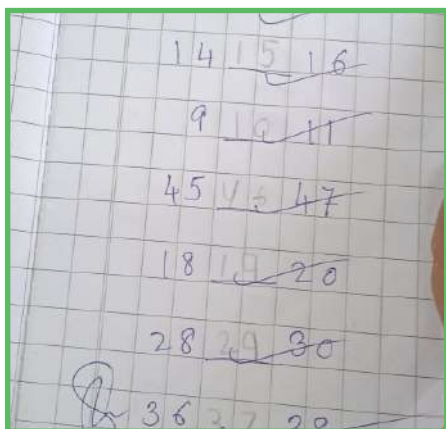 14 15 16
9 10 11
45 46 47
18 19 20
28 29 30
36 37